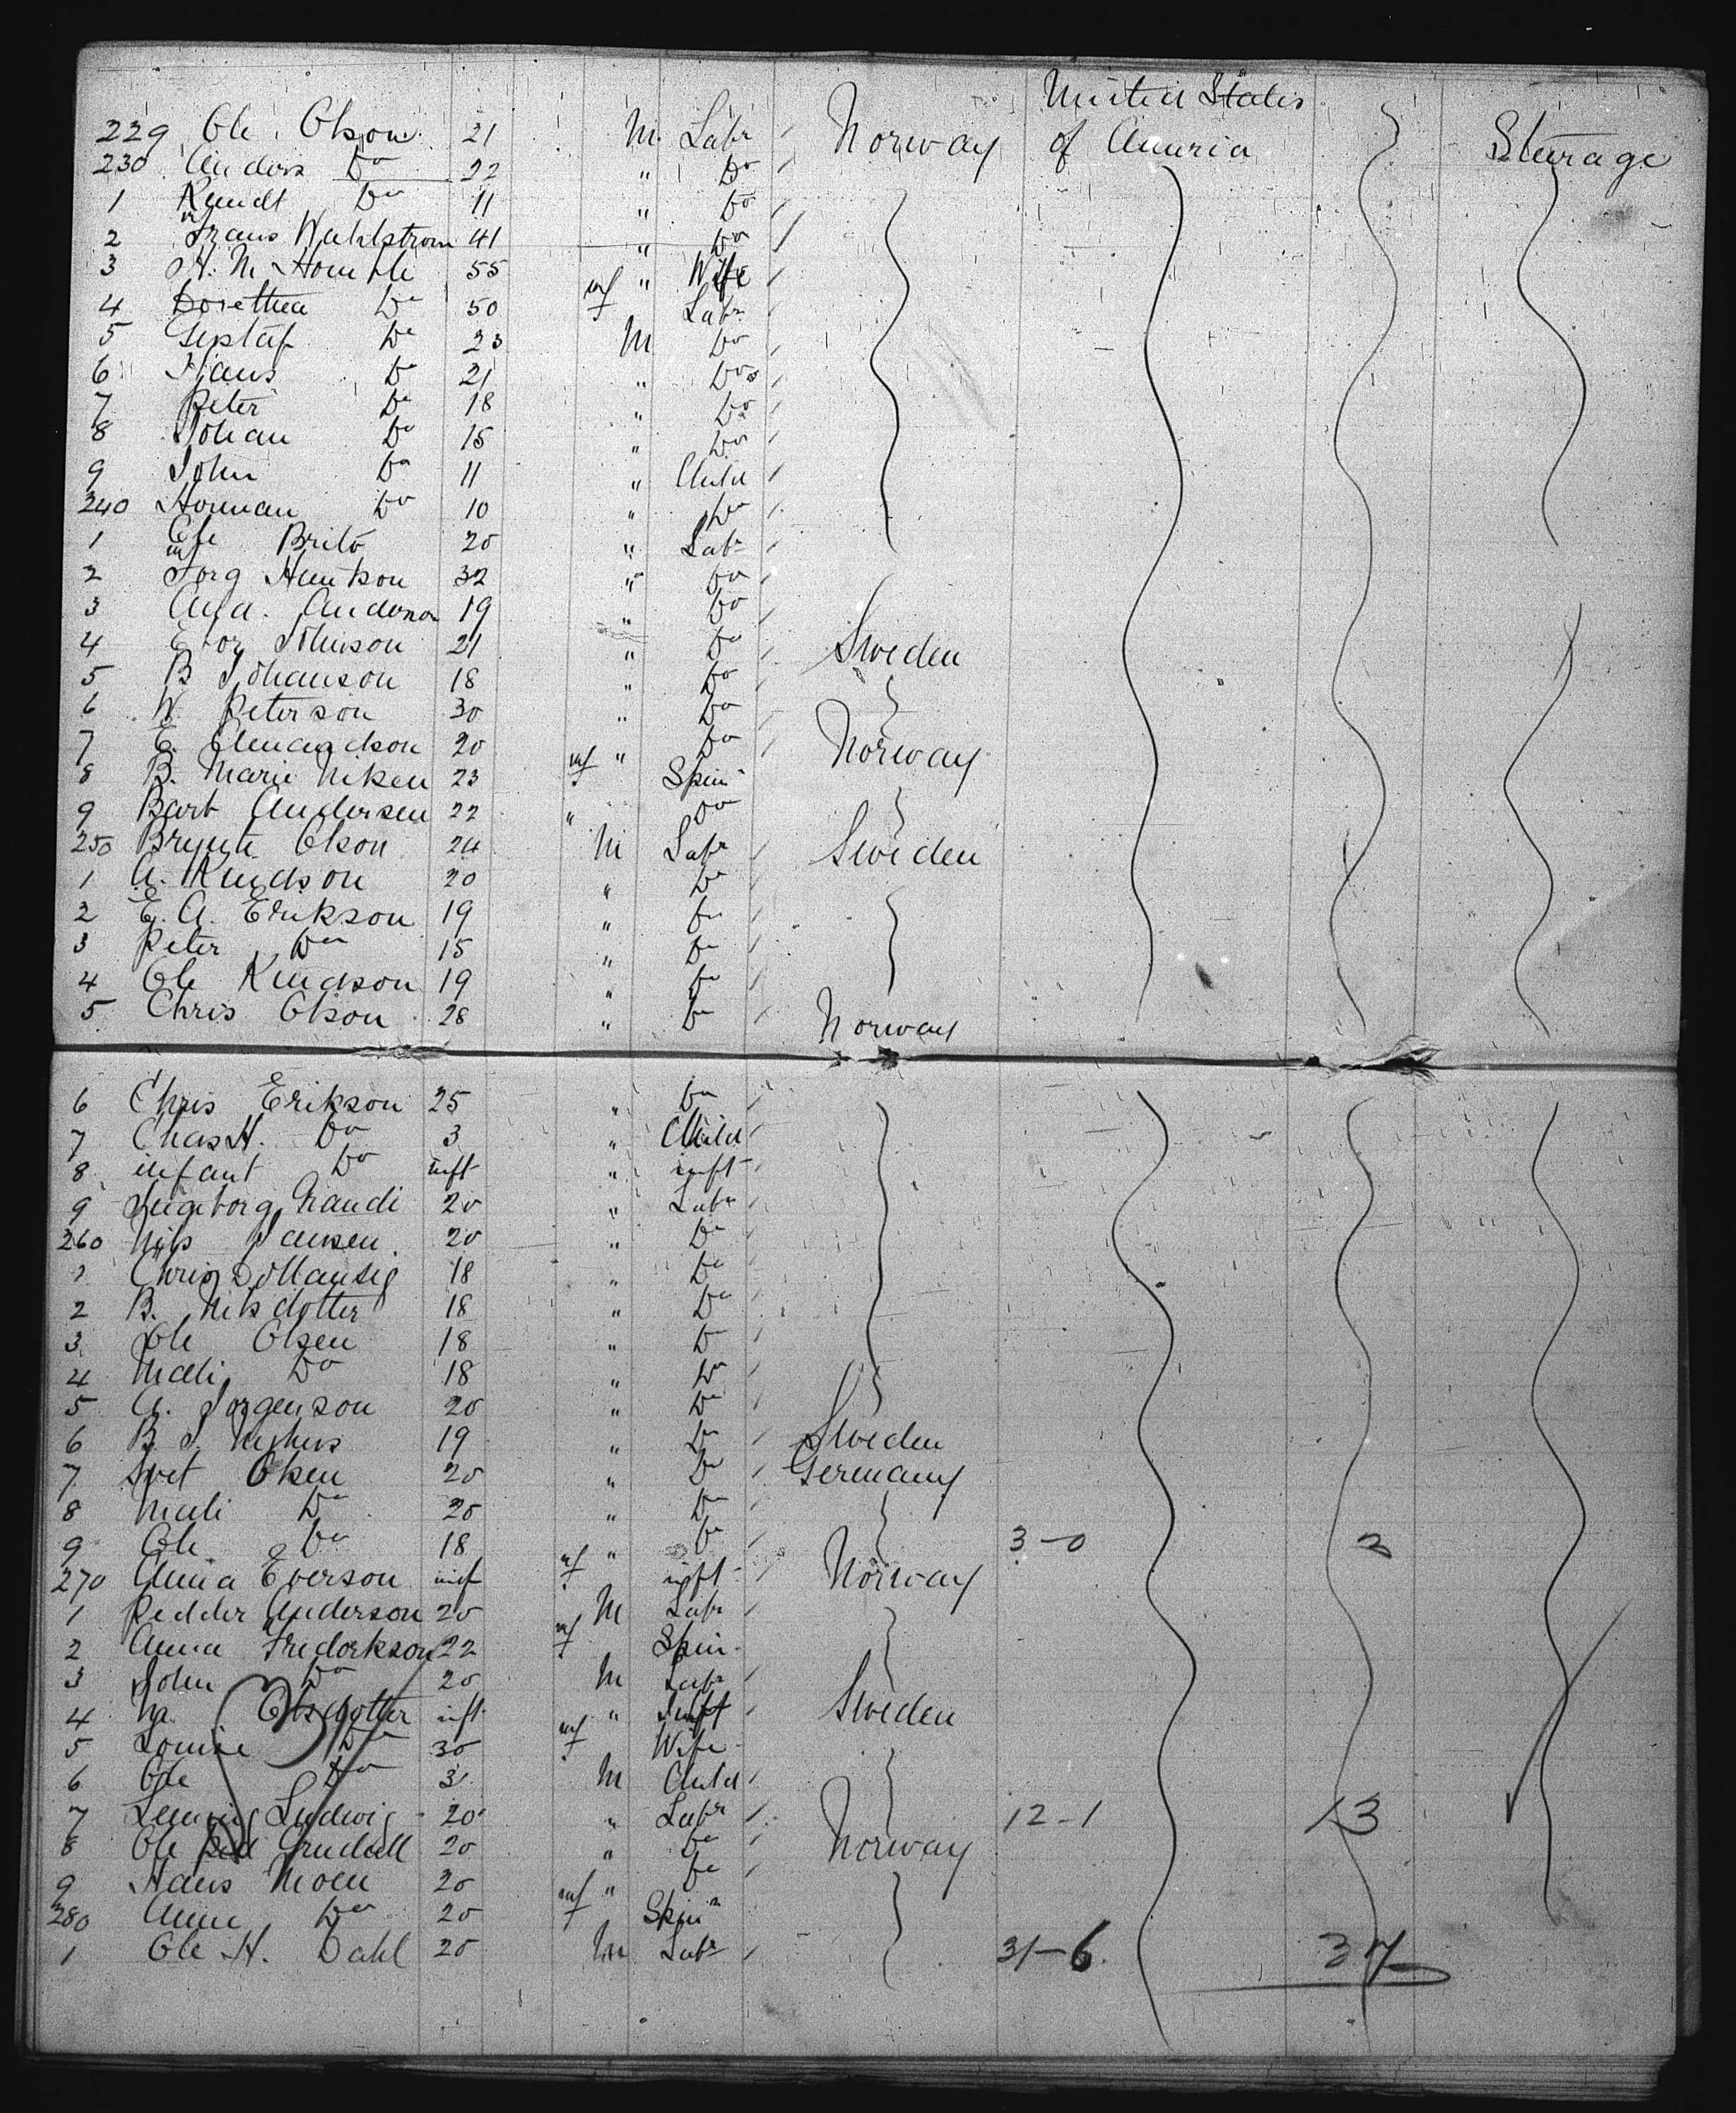 United States
229 Ole Olson 21 M Labr Norway of America Steerage
230 Anders Do 22 " Do
1 Knudt Do 11 " Do
2 Frans Wahlstrom 41 " Do
3 H. M. 55 " Wife
4 Dorethea Do 50 f Labr
5 Gustaf Do 23 M Do
6 Hans Do 21 " Do
7 Peter Do 18 " Do
8 Johan Do 15 " Do
9 John Do 11 " Child
240 Herman Do 10 " Do
1 Ole 20 " Labr
2 32 " Do
3 And. Anderson 19 " Do
4 Johnson 21 " Do Sweden
5 B Johanson 18 " Do
6 W. Peterson 30 " Do
7 E. 20 " Do Norway
8 B. Marie 23 f Spin
9 Andersen 22 " Do
250 Olson 24 M Labr Sweden
1 A. Knudson 20 " Do
2 E. A. Erikson 19 " Do
3 Peter Do 15 " Do
4 Ole Knudson 19 " Do
5 Chris Olson 28 " Do Norway
6 Chris Erikson 25 " Do
7 Chas H. Do 3 " Child
8 infant Do inft " inft
9 Ingeborg 20 " Labr
260 Nils Jansen 20 " Do
1 Chris 18 " Do
2 B. Nilsdotter 18 " Do
3 Ole Olsen 18 " Do
4 Do 18 " Do
5 A. Jorgenson 20 " Do
6 B. J. 19 " Do Sweden
7 Olsen 20 " Do Germany
8 Do 20 " Do
9 Ole Do 18 " Do 3-0 3
270 Anna Everson inf f inft Norway
1 Pedder Anderson 20 M Labr
2 Anna Fredorkson 22 f Spin
3 John Do 20 M Labr
4 inft " Inft Sweden
5 Louise Do 30 f Wife
6 Ole Do 3 M Child
7 Ludwig 20 " Labr 12-1 13
8 Ole 20 " Do Norway
9 Hans Moen 20 " Do
280 Anne Do 20 f Spin
1 Ole H. Dahl 20 M Labr 31-6 37